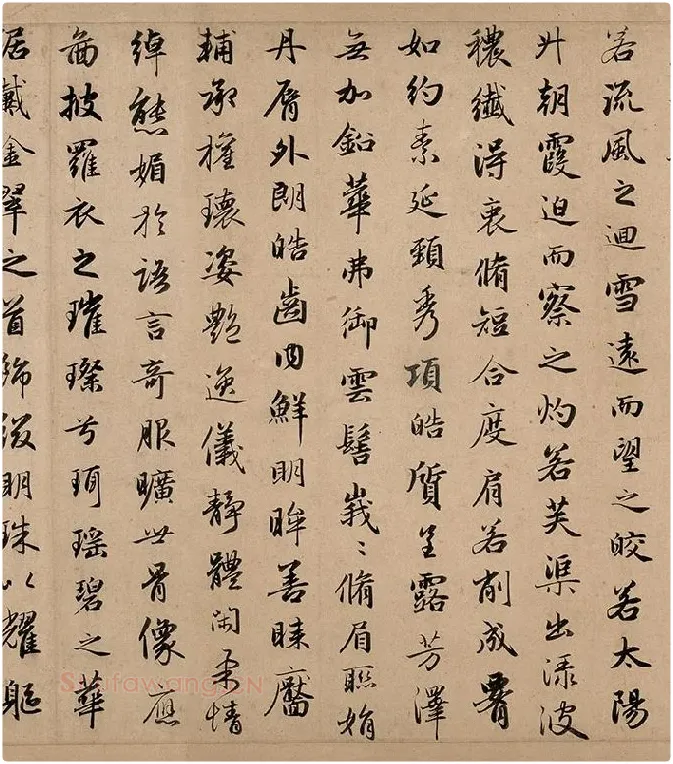 若流風之迴雪遠而望之皎若太陽
升朝霞迫而察之灼若芙渠出淥波
穠纖得衷脩短合度肩若削成署
如約素延頸秀項皓質呈露芳澤
無加鉛華弗御雲髻峩〻脩眉聯娟
丹脣外朗皓齒內鮮明眸善睞靨
輔承權瓌姿艷逸儀靜體閑柔情
綽態媚於語言奇服曠世骨像應
圖披羅衣之璀璨兮珥瑶碧之華
琚戴金翠之首飾綴明珠以耀軀
Shufawang.CN